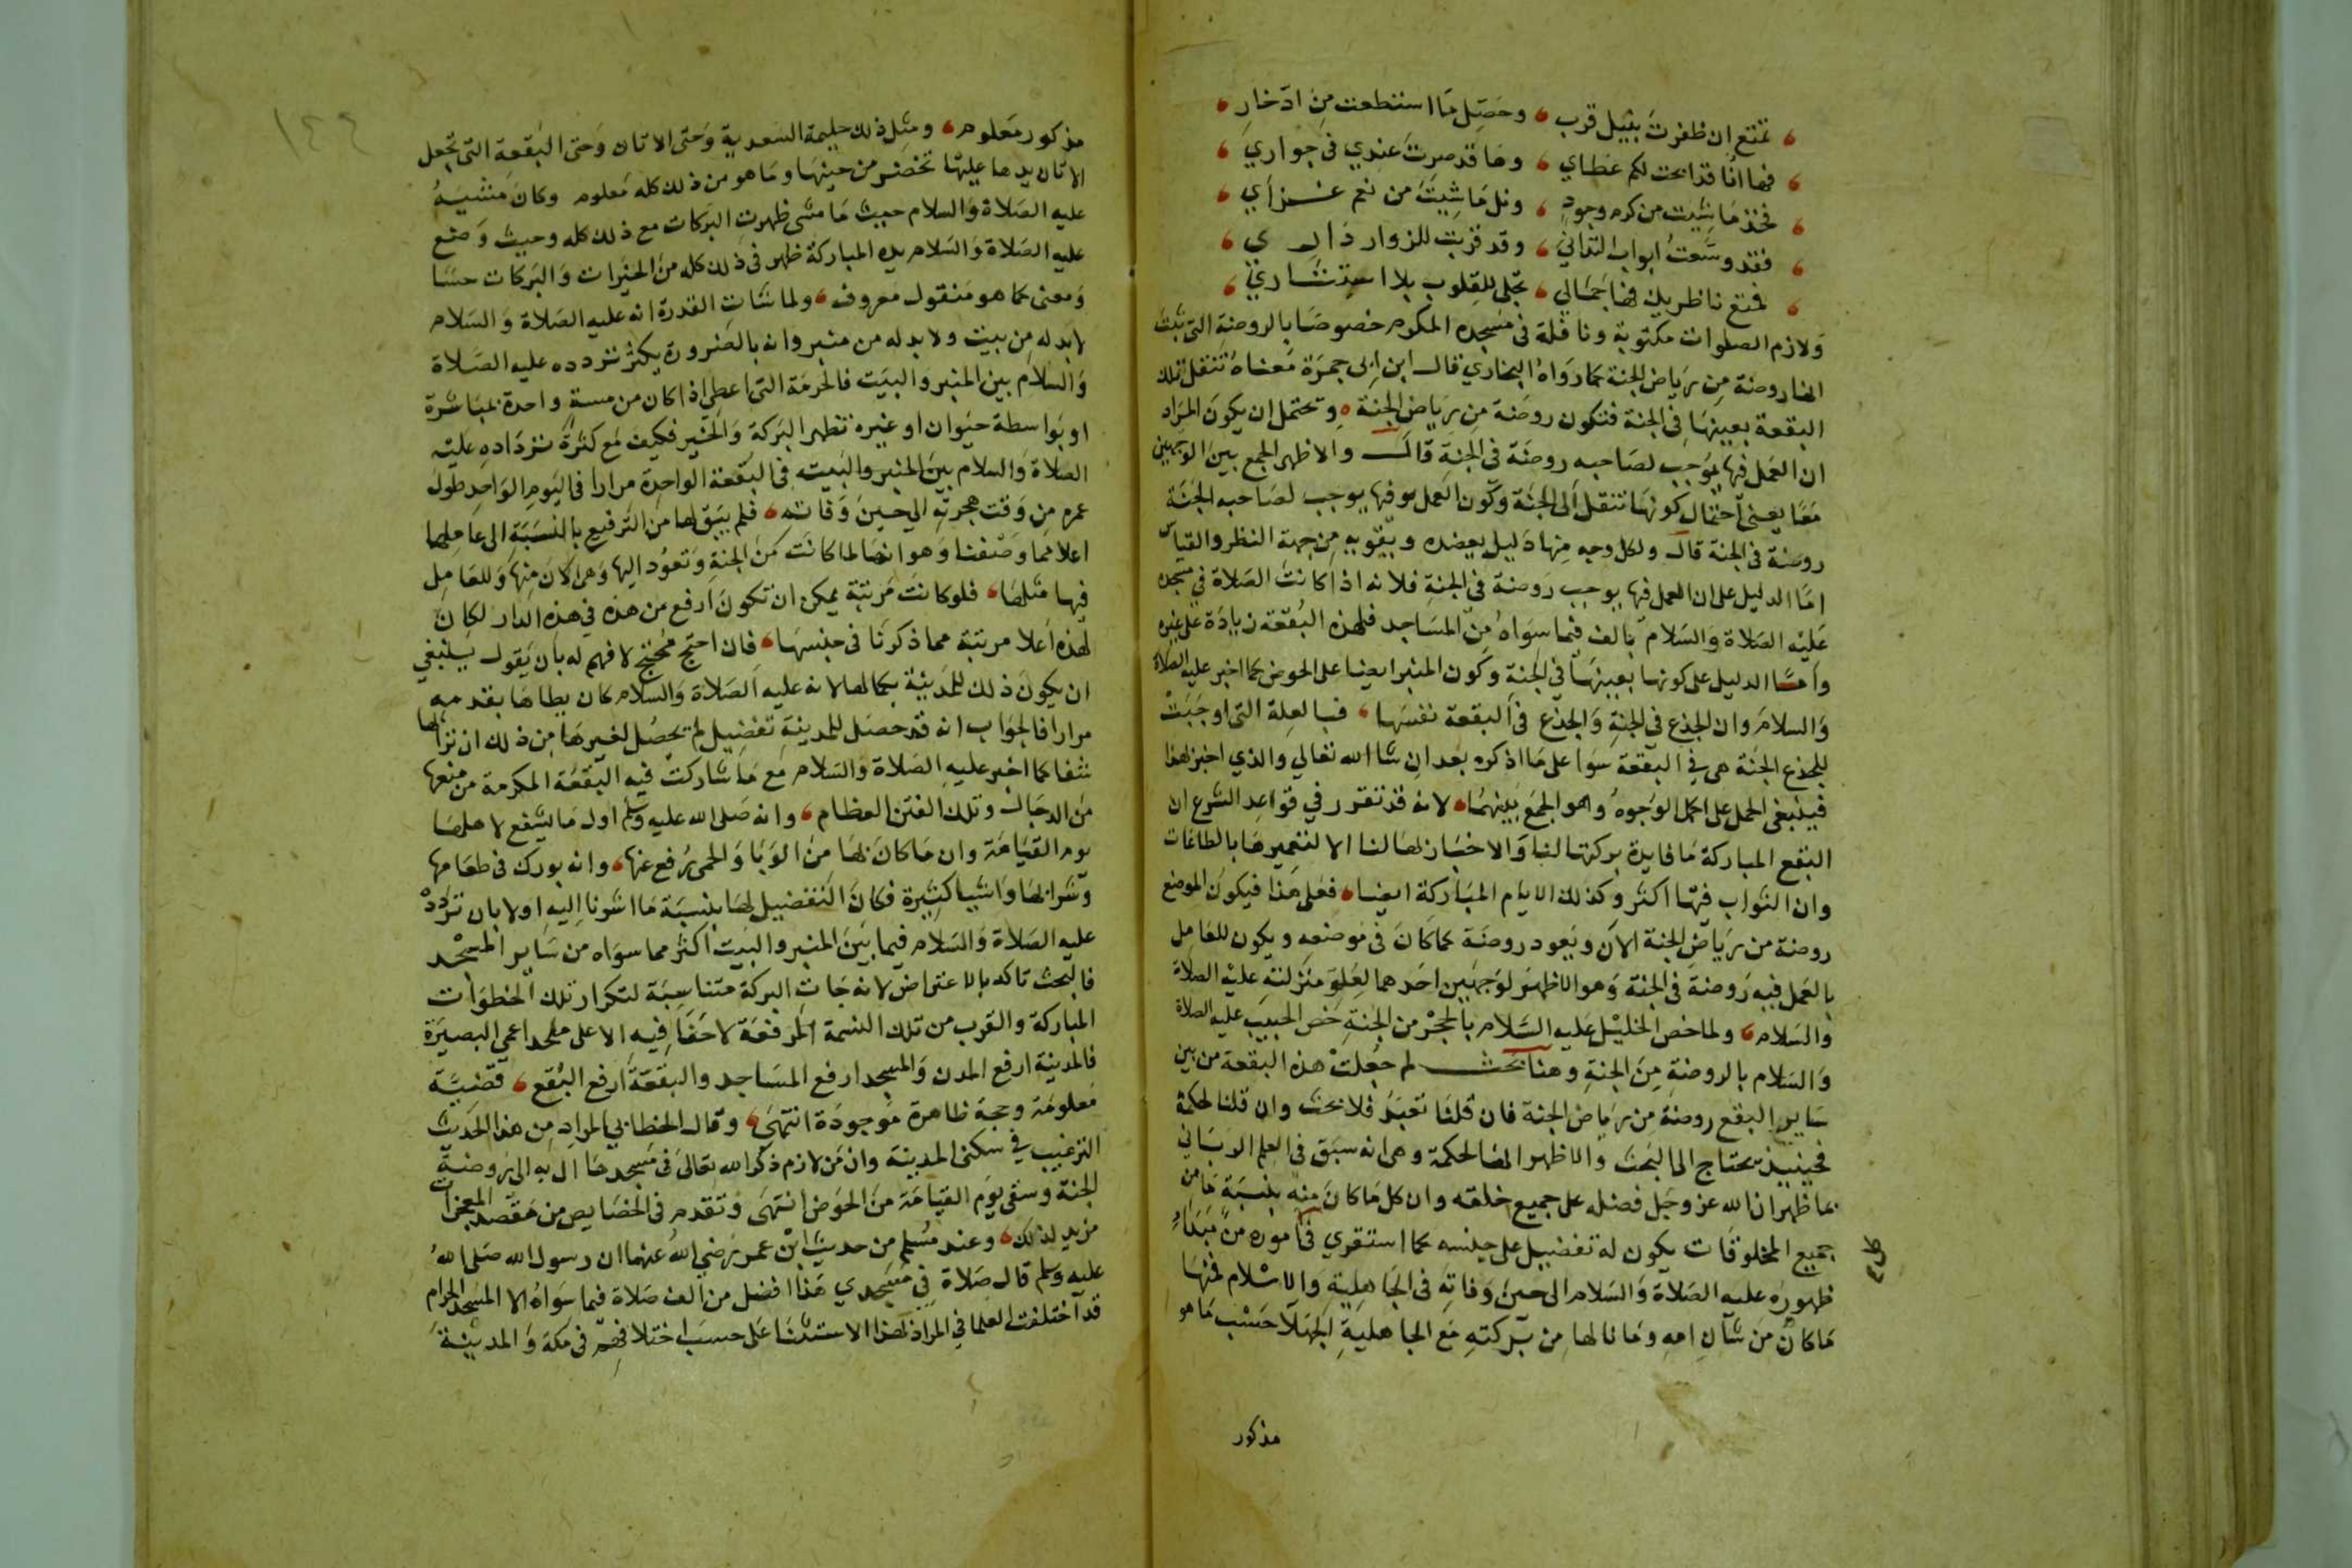 تمتع ان ظفرت بنيل قرب وحصل ما استطعت من ادخار
فها انا قد ابحت لكم عطاي وها قد صرت عندي في جواري
فخذ ما شيت من كرم وجود ونل ما شيت من نعم غزاري
فقد وسعت ابواب التداني وقد قربت للزوار داري
فمتع ناظريك فها جمالي تجلى للقلوب بلا استتاري
ولازم الصلوات مكتوبة ونافلة في مسجده المكرم خصوصا بالروضة التي ثبت
انها روضة من رياض الجنة كما رواه البخاري قال ابن ابي جمرة معناه تنتقل تلك
البقعة بعينها في الجنة فتكون روضة من رياض الجنة ويحتمل ان يكون المراد
ان العمل فيها يوجب لصاحبه روضة في الجنة قال والاظهر الجمع بين الوجهين
معا يعني احتمال كونها تنتقل الى الجنة وكون العمل فيها يوجب لصاحبه الجنة
روضة في الجنة قال ولكل وجه منها دليل يعضده ويقويه من جهة النظر والقياس
اما الدليل على ان العمل فيها يوجب روضة في الجنة فلانه اذا كانت الصلاة في مسجده
عليه الصلاة والسلام بالف فيما سواه من المساجد فلهذه البقعة زيادة على غيره
واما الدليل على كونها بعينها في الجنة وكون المنبر ايضا على الحوض كما اخبر عليه الصلاة
والسلام وان الجذع في الجنة والجذع في البقعة نفسها فبالعلة التي اوجبت
للجذع الجنة هي في البقعة سوا على ما اذكره بعد ان شا الله تعالي والذي اخبر بهذا
فينبغي الحمل على اكمل الوجوه وهو الجمع بينهما لانه قد تقرر في قواعد الشرع ان
البقع المباركة ما فايدة بركتها لنا والاخبار بها لنا الا لتعميرها بالطاعات
وان الثواب فيها اكثر وكذلك الايام المباركة ايضا فعلى هذا فيكون الموضع
روضة من رياض الجنة الان ويعود روضة كما كان في موضعه ويكون للعامل
بالعمل فيه روضة في الجنة وهو الاظهر لوجهين احدهما لعلو منزلته عليه الصلاة
والسلام ولما خص الخليل عليه السلام بالحجر من الجنة خص الحبيب عليه الصلاة
والسلام بالروضة من الجنة وهنا بحث لم جعلت هذه البقعة من بين
ساير البقع روضة من رياض الجنة فان قلنا تعبد فلا بحث وان قلنا لحكمة
فحينيذ يحتاج الى البحث والاظهر انها لحكمة وهي انه سبق في العلم الرباني
بما ظهر ان الله عز وجل فضله على جميع خلقه وان كل ما كان منه بنسبة ما من
جميع المخلوقات يكون له تفضيل على جنسه كما استقري في اموره من مبداء
ظهوره عليه الصلاة والسلام الى حين وفاته في الجاهلية والاسلام فمنها
ما كان من شان امه وما نالها من بركته مع الجاهلية الجهلا حسب ما هو
مذكور
مذكور معلوم ومثل ذلك حليمة السعدية وحتى الاتان وحتى البقعة التي تجعل
الاتان يدها عليها تخضر من حينها وما هو من ذلك كله معلوم وكان مشيه
عليه الصلاة والسلام حيث ما مشى ظهرت البركات مع ذلك كله وحيث وضع
عليه الصلاة والسلام يده المباركة ظهر في ذلك كله من الخيرات والبركات حسا
ومعنى كما هو منقول معروف ولما شات القدرة انه عليه الصلاة والسلام
لابد له من بيت ولا بد له من منبر وانه بالضرورة يكثر تردده عليه الصلاة
والسلام بين المنبر والبيت فالحرمة التي اعطى اذا كان من مسة واحدة بمباشرة
او بواسطة حيوان او غيره تظهر البركة والخير فكيف مع كثرة تردداده عليه
الصلاة والسلام بين المنبر والبيت في البقعة الواحدة مرارا في اليوم الواحد طول
عمره من وقت هجرته الي حين وفاته فلم يبق لها من الترفيع بالنسبة الى عالمها
اعلا مما وصفنا وهو انها لما كانت من الجنة وتعود اليها وهي الان منها وللعامل
فيها مثلها فلو كانت مرتبة يمكن ان تكون ارفع من هذه في هذه الدار لكان
لهذه اعلا مرتبة مما ذكرنا في جنسها فان احتج محتج لا فهم له بان يقول ينبغي
ان يكون ذلك للمدينة بكمالها لانه عليه الصلاة والسلام كان يطاها بقدمه
مرارا فالجواب انه قد حصل للمدينة تفضيل لم يحصل لغيرها من ذلك ان ترابها
شفا كما اخبر عليه الصلاة والسلام مع ما شاركت فيه البقعة المكرمة من منعها
من الدجال وتلك الفتن العظام وانه صلى الله عليه وسلم اول ما يشفع لاهلها
يوم القيامة وان ما كان بها من الوبا والحمى رفع عنها وانه بورك في طعامها
وشرابها واشيا كثيرة فكان التفضيل لها بنسبة ما اشرنا اليه اولا بان تردد
عليه الصلاة والسلام فيما بين المنبر والبيت اكثر مما سواه من ساير المسجد
فالبحث تاكد بالاعتراض لانه جات البركة متناسبة لتكرار تلك الخطوات
المباركة والقرب من تلك النسمة المرفعة لا خفا فيه الا على ملحد اعمى البصيرة
فالمدينة ارفع المدن والمسجد ارفع المساجد والبقعة ارفع البقع قضية
معلومة وحجة ظاهرة موجودة انتهى وقال الخطابي المراد من هذا الحديث
الترغيب في سكنى المدينة وان من لازم ذكر الله تعالى في مسجدها ال به الى روضة
الجنة وسقي يوم القيامة من الحوض انتهى وتقدم في الخصايص من مقصد المعجزات
مزيد لذلك وعند مسلم من حديث ابن عمر رضي الله عنهما ان رسول الله صلى الله
عليه وسلم قال صلاة في مسجدي هذا افضل من الف صلاة فيما سواه الا المسجد الحرام
قد اختلفت العلما في المراد بهذا الاستثنا على حسب اختلافهم في مكة والمدينة
١٤٤